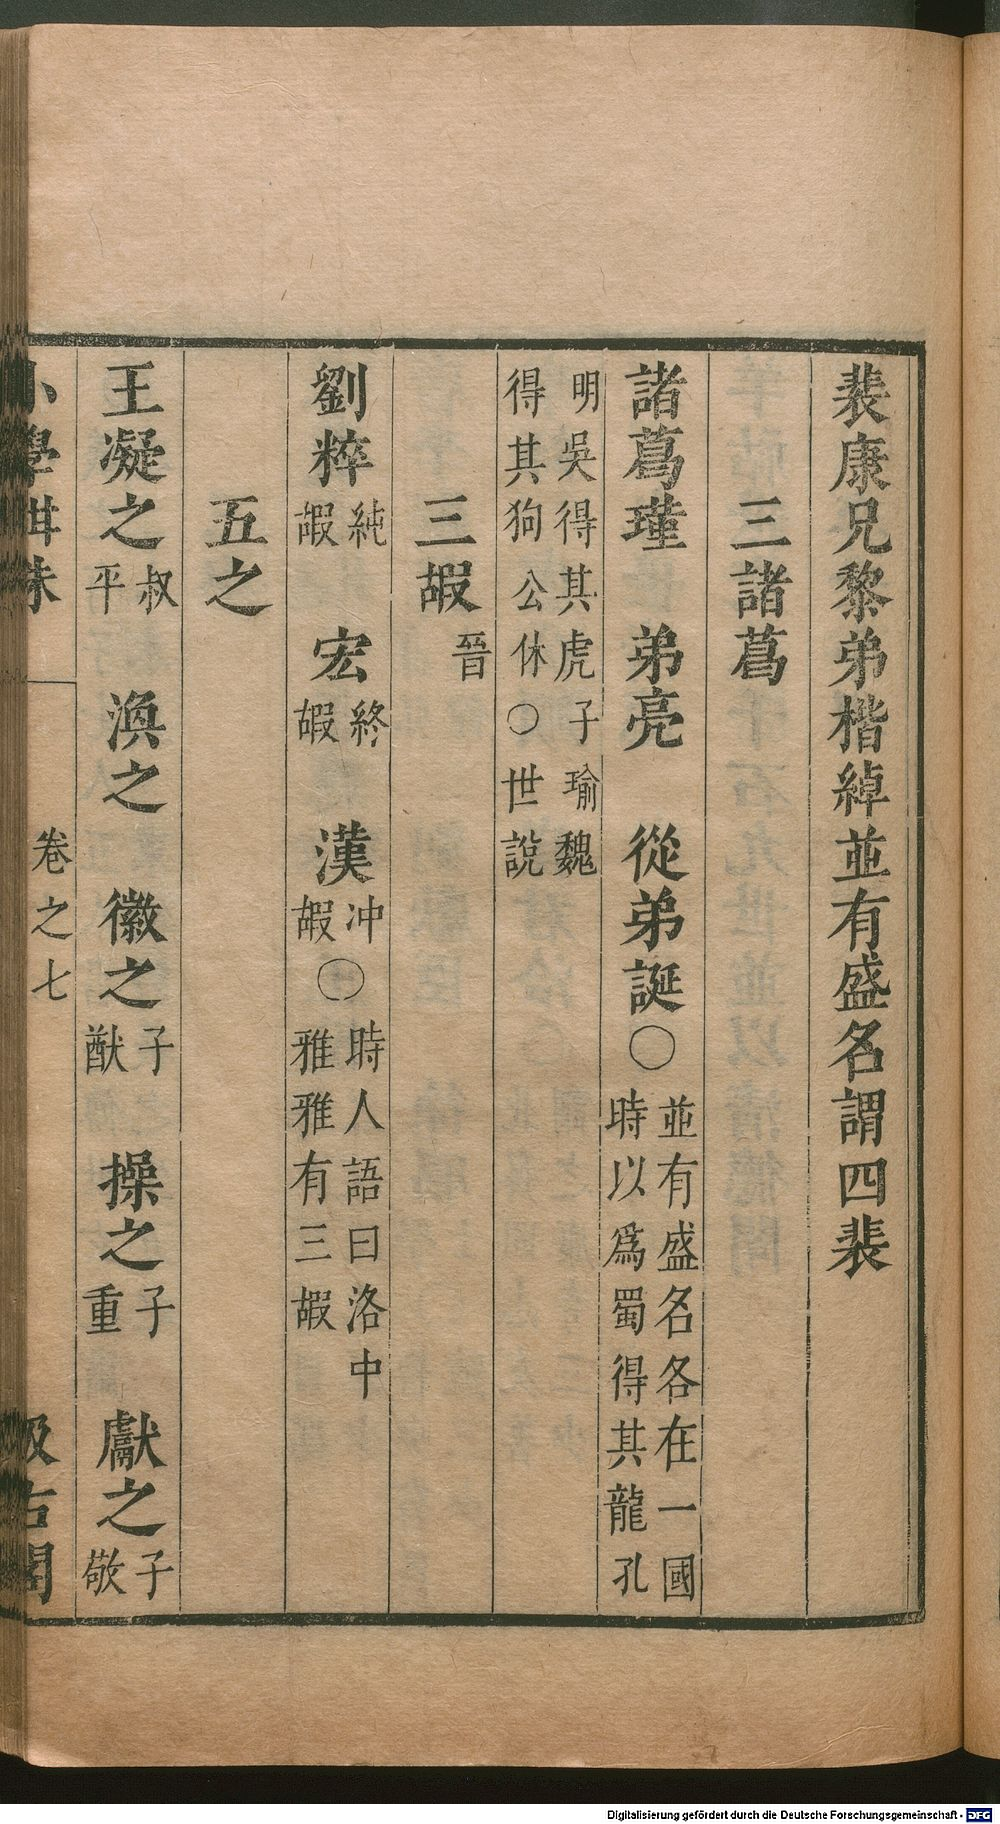 裴康兄黎弟楷綽並有盛名謂四裴
三諸葛
諸葛瑾　弟亮　從弟誕〇並有盛名各在一國時以爲蜀得其龍孔
明吳得其虎子瑜魏得其狗公休〇世說
三嘏晉
劉粹純嘏　宏終嘏　漢冲嘏〇時人語曰洛中雅雅有三嘏
五之
王凝之叔平　渙之　徽之子猷　操之子重　獻之子敬
小學紺珠　卷之七　汲古閣
Digitalisierung gefördert durch die Deutsche Forschungsgemeinschaft - DFG